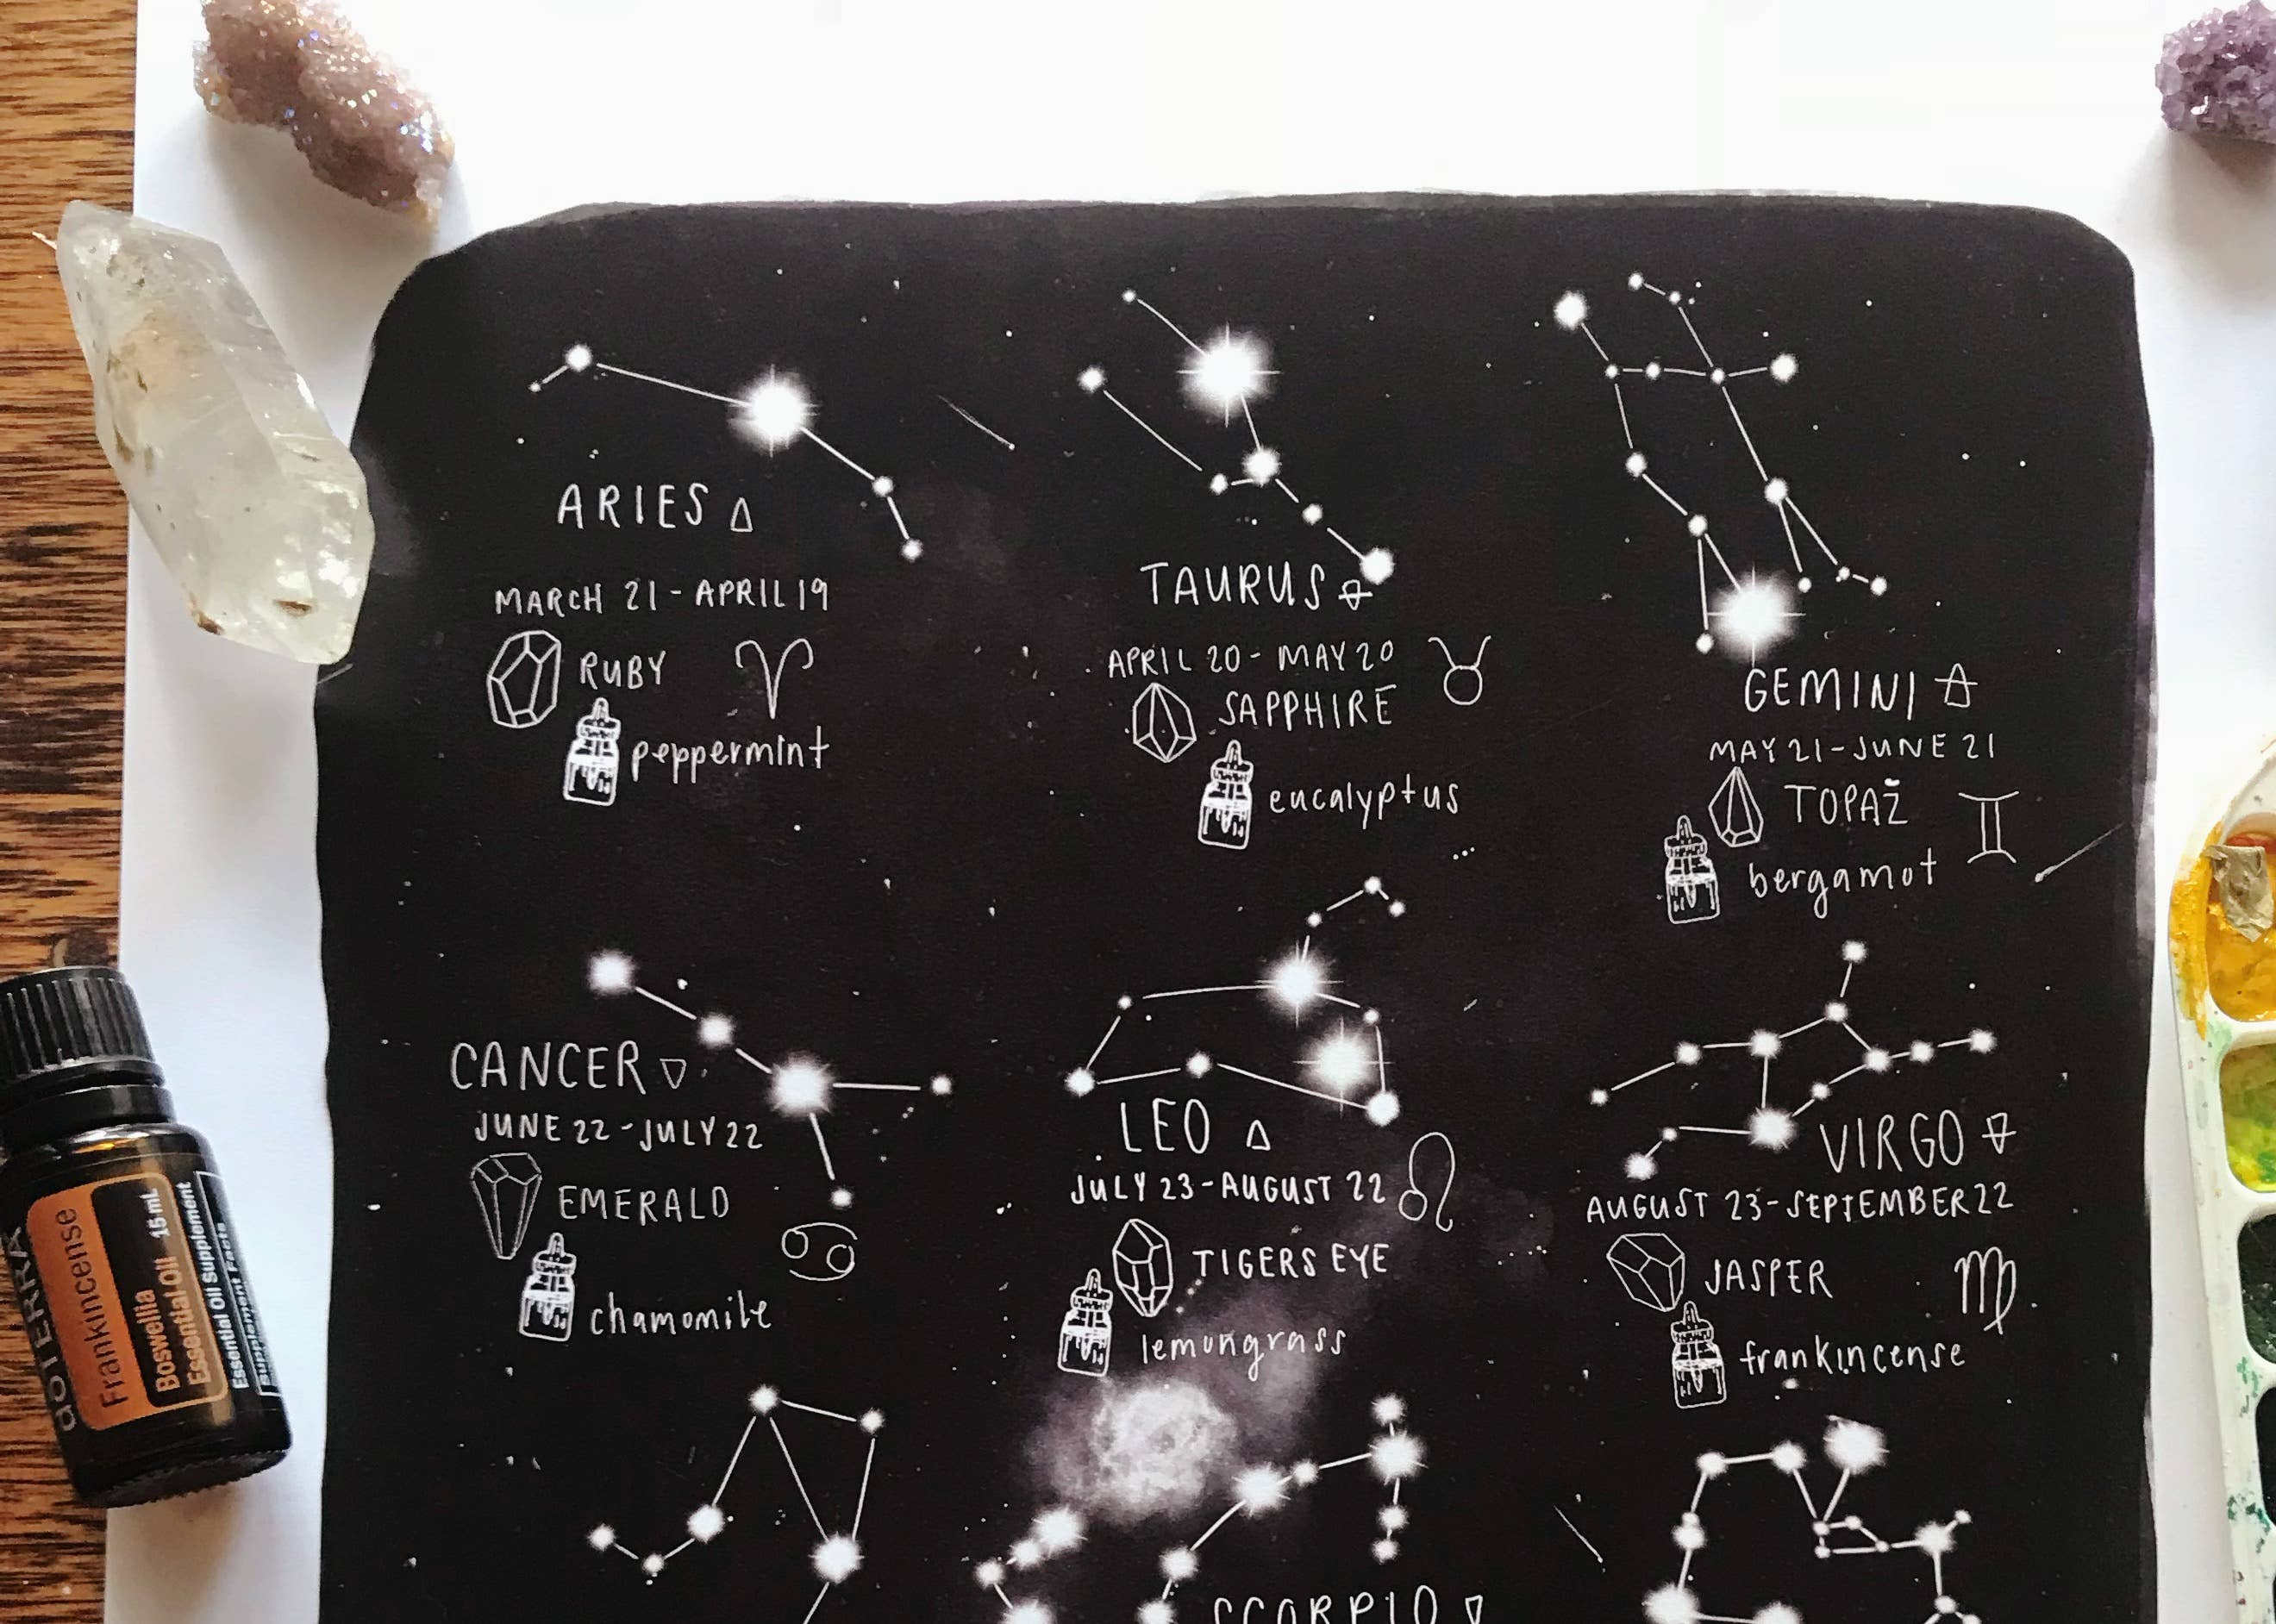 ARIES
MARCH 21 - APRIL 19
RUBY
peppermint
TAURUS
APRIL 20 - MAY 20
SAPPHIRE
eucalyptus
GEMINI
MAY 21 - JUNE 21
TOPAZ
bergamot
CANCER
JUNE 22 - JULY 22
EMERALD
chamomile
LEO
JULY 23 - AUGUST 22
TIGERS EYE
lemongrass
VIRGO
AUGUST 23 - SEPTEMBER 22
JASPER
frankincense
SCORPIO
dōTERRA
Frankincense
Boswellia
Essential Oil 15 mL
Essential Oil Supplement
Supplement Facts